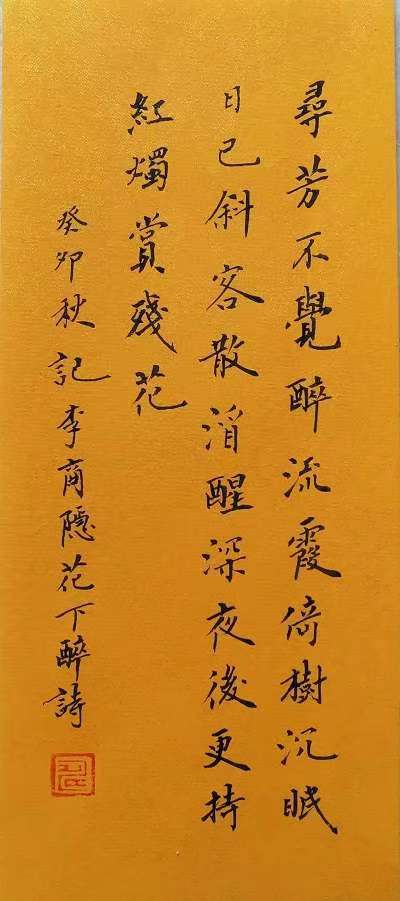 尋芳不覺醉流霞倚樹沉眠
日已斜客散酒醒深夜後更持
紅燭賞殘花
癸卯秋記李商隱花下醉詩